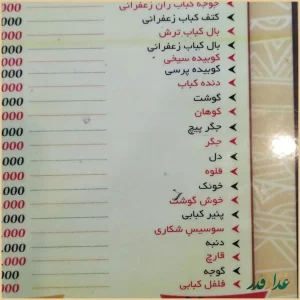 جوجه کباب ران زعفرانی 000
کتف کباب زعفرانی 000
بال کباب ترش 000
بال کباب زعفرانی 000
کوبیده سیخی 000
کوبیده پرسی 000
دنده کباب 000
گوشت 000
کوهان 000
جگر پیچ 000
جگر 000
دل 000
قلوه 000
خونک 000
خوش گوشت 000
پنیر کبابی 000
سوسیس شکاری 000
دنبه 000
قارچ 000
گوجه 000
فلفل کبابی 000